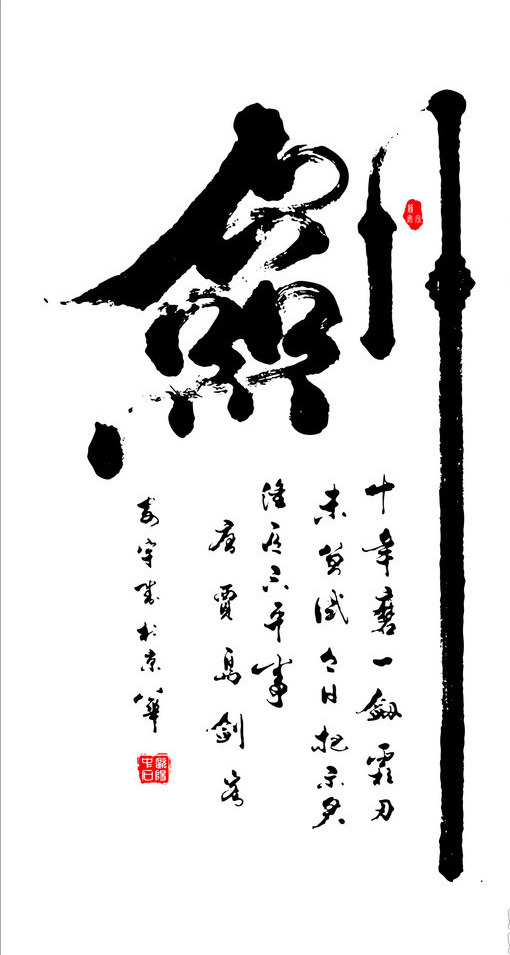 劍
十年磨一劍霜刃
未曾试今日把示君
谁有不平事
唐賈島劍客
於京華
歐陽中石